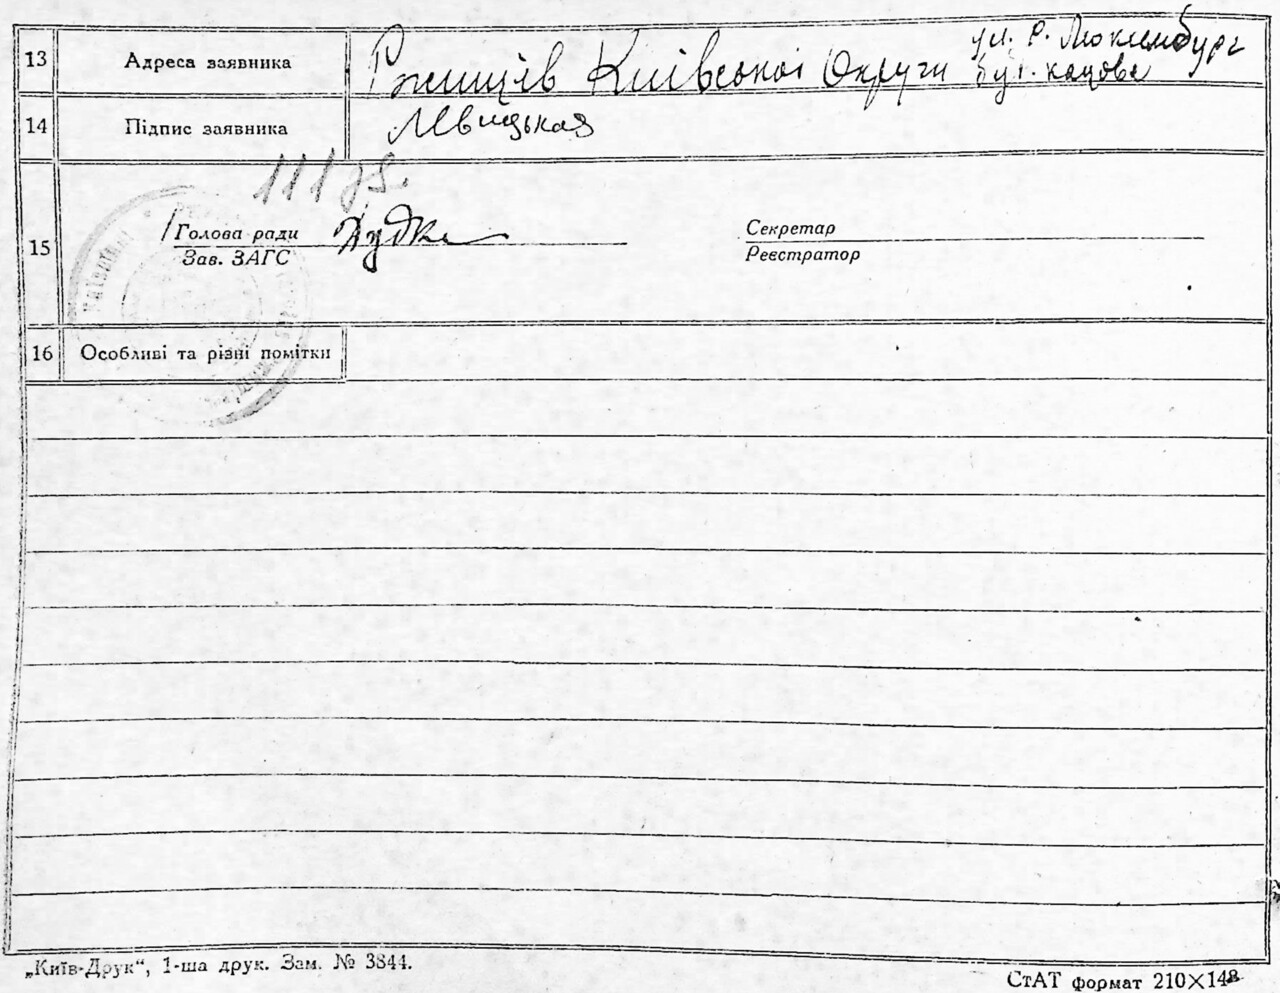 13 Адреса заявника Ржищів Київської Округи ул. Р. Люксембург
буд. Кацова
14 Підпис заявника Левицькая
111 
15 Голова ради Дудка Секретар
Зав. ЗАГС Реєстратор
16 Особливі та різні помітки
„Київ-Друк“, 1-ша друк. Зам. № 3844.
СтАТ формат 210×148